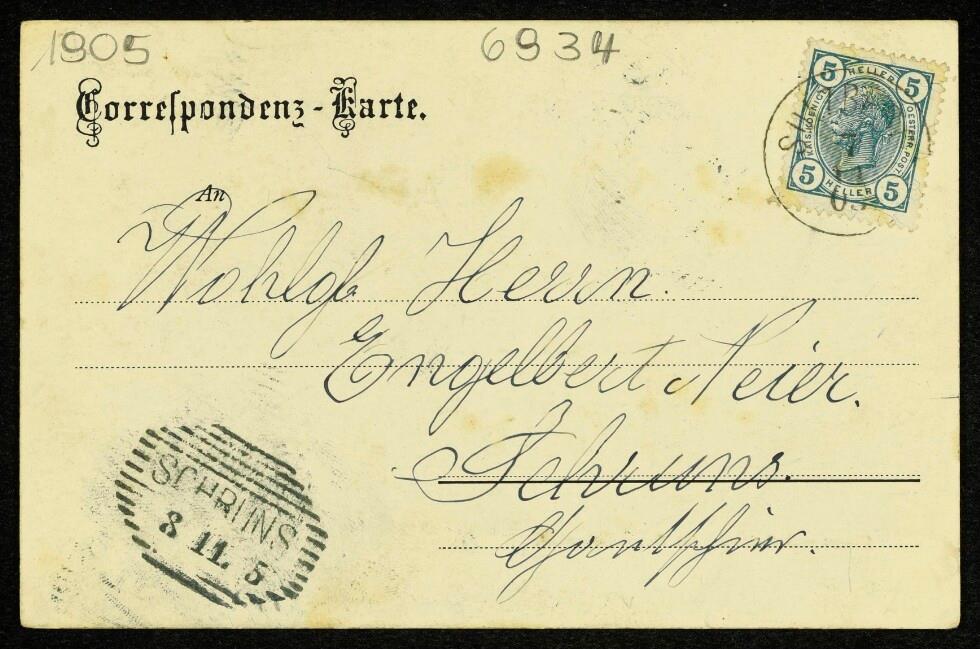 1905 6934
Correspondenz-Karte.
5 HELLER 5
KAIS. KOENIGL. OESTERR. POST
5 HELLER 5
11
An
Wohlgb Herrn.
Engelbert Neier.
Schruns.
Gantschier.
SCHRUNS
8 11. 5